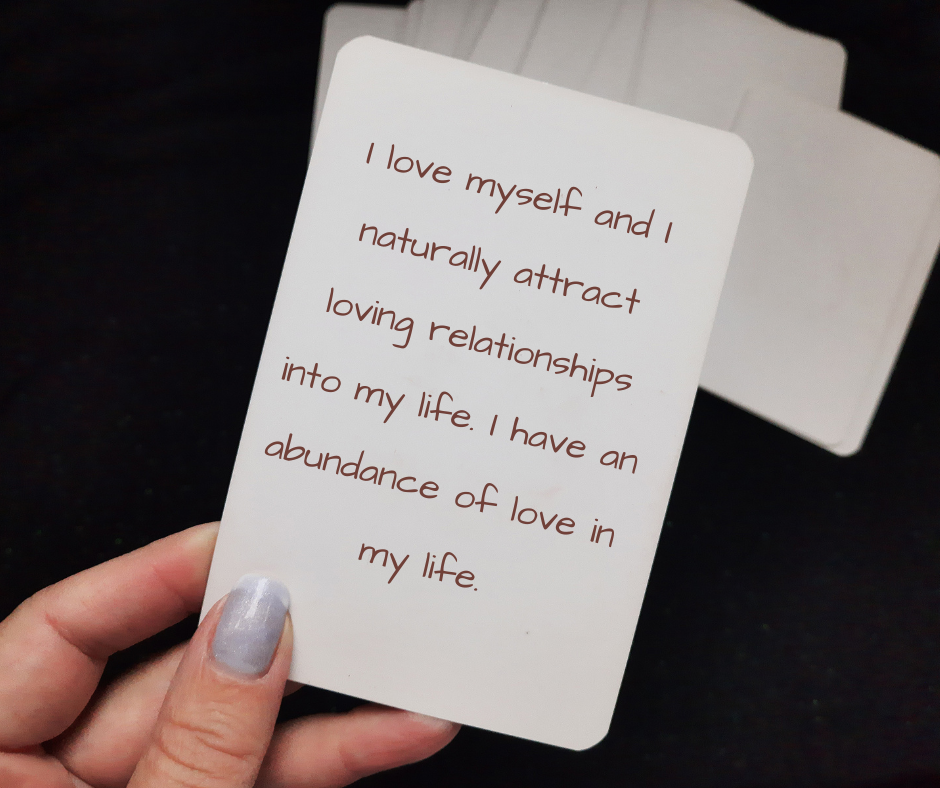 I love myself and I
naturally attract
loving relationships
into my life. I have an
abundance of love in
my life.